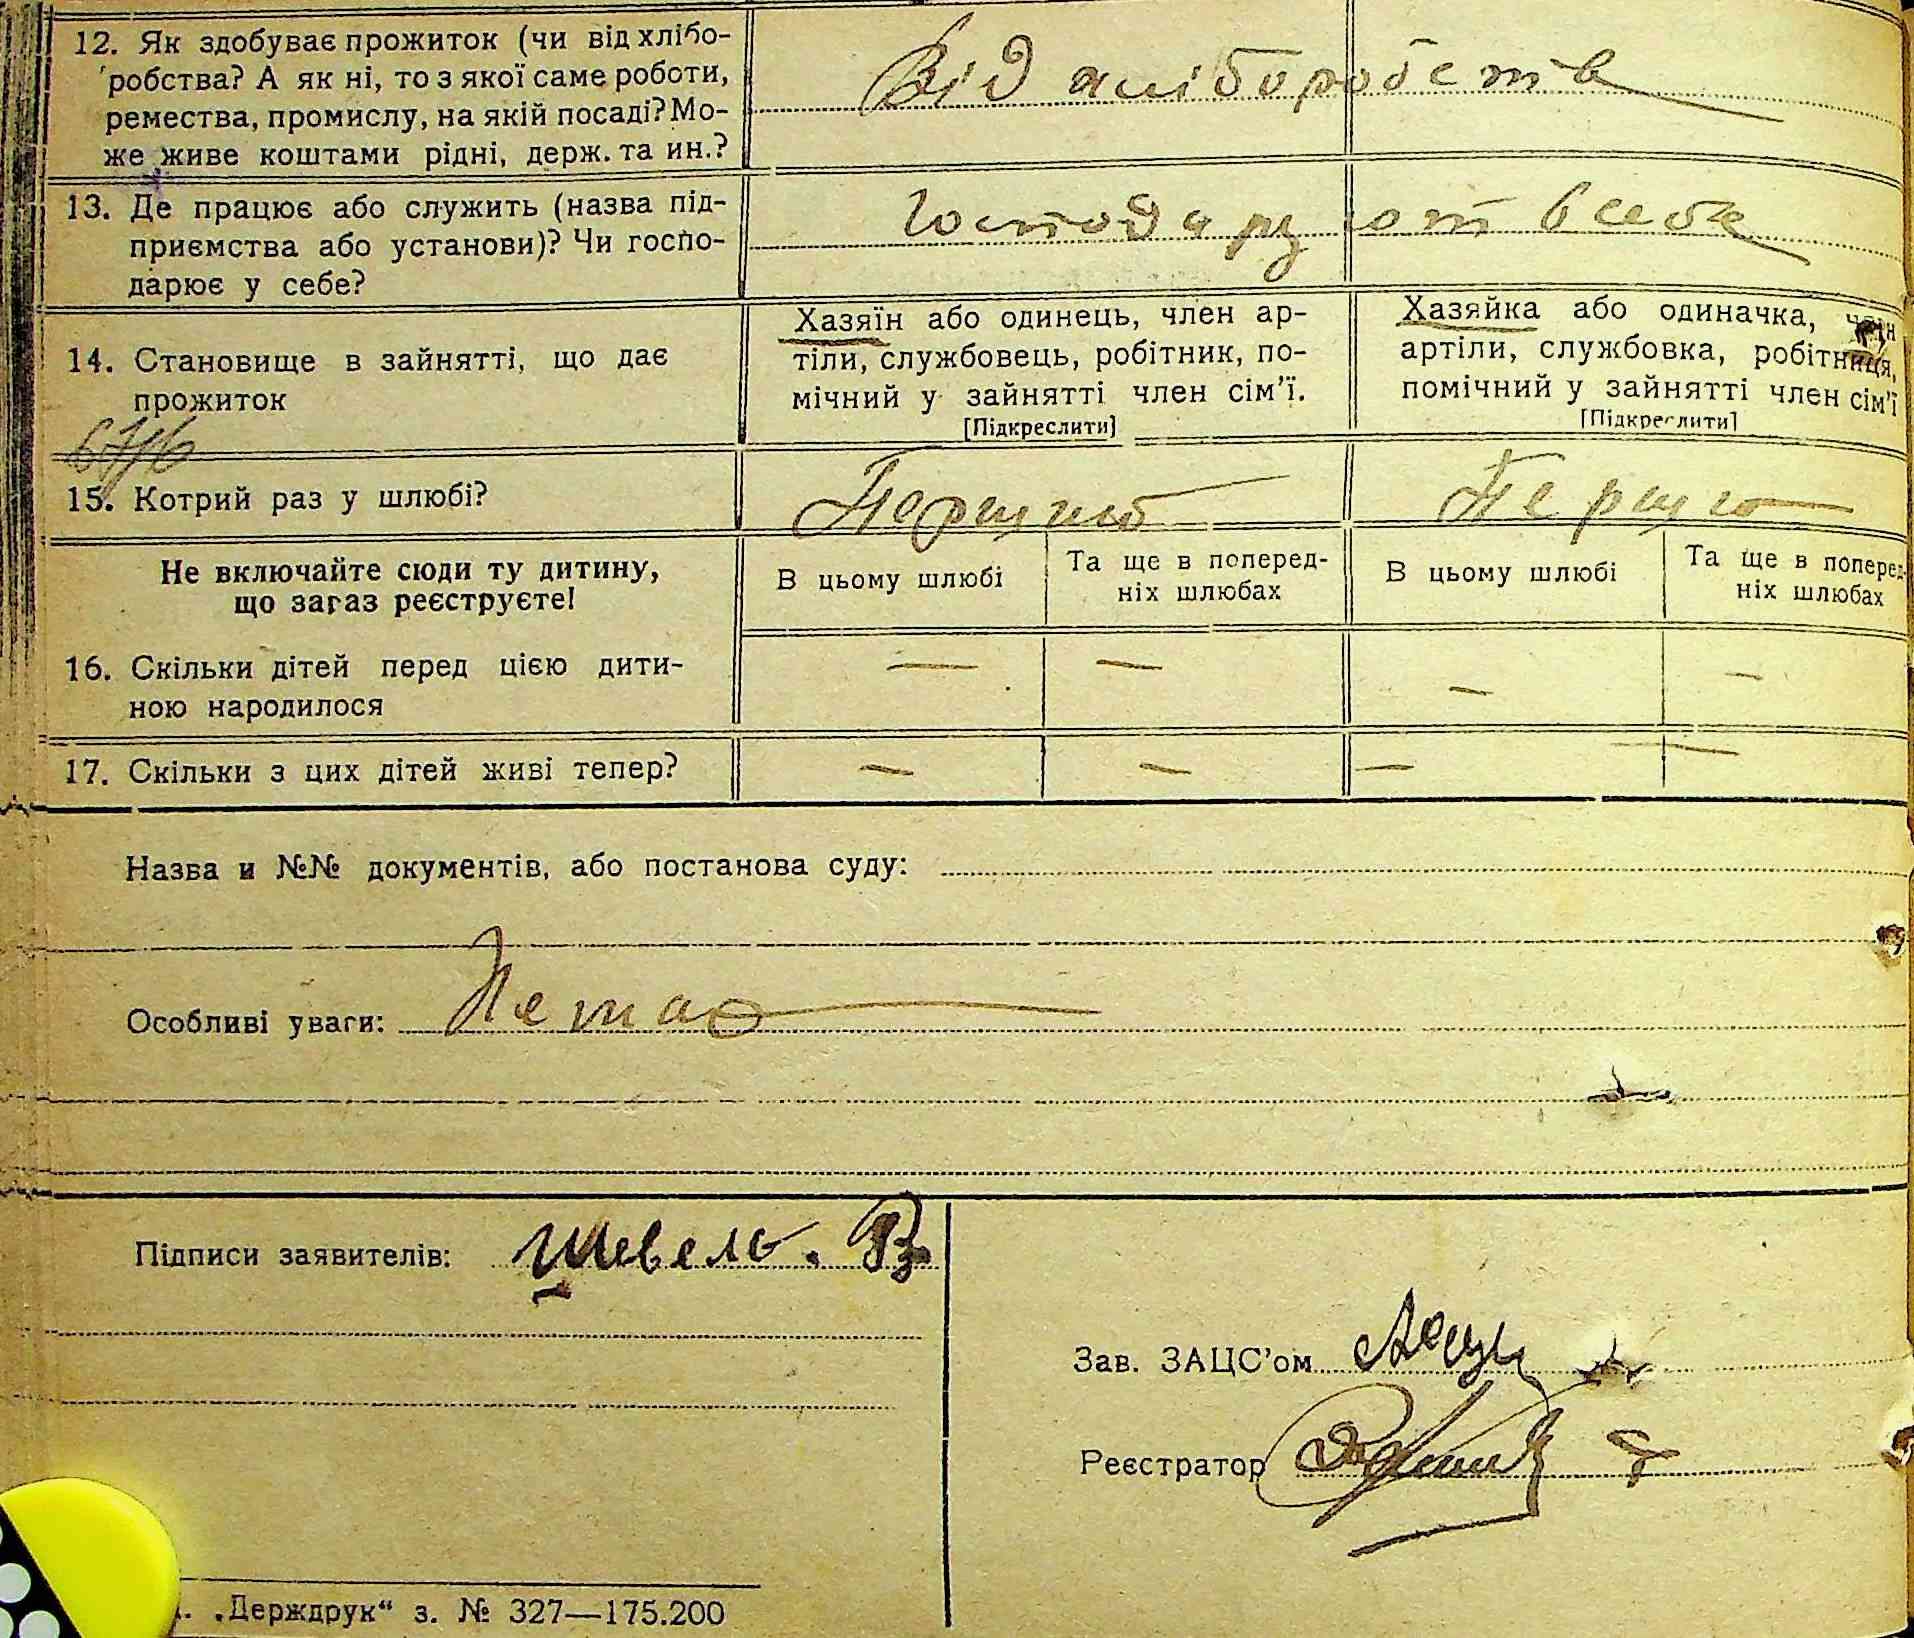 12. Як здобуває прожиток (чи від хлібо-
робства? А як ні, то з якої саме роботи,
ремества, промислу, на якій посаді? Мо-
же живе коштами рідні, держ. та ин.?
Від хліборобств
13. Де працює або служить (назва під-
приємства або установи)? Чи госпо-
дарює у себе?
Господарують в себе
14. Становище в зайнятті, що дає
прожиток
Хазяїн або одинець, член ар-
тіли, службовець, робітник, по-
мічний у зайнятті член сім'ї.
[Підкреслити]
Хазяйка або одиначка, член
артіли, службовка, робітниця,
помічний у зайнятті член сім'ї
[Підкреслити]
15. Котрий раз у шлюбі?
Перший
Першо
Не включайте сюди ту дитину,
що зараз реєструєте!
В цьому шлюбі
Та ще в поперед-
ніх шлюбах
В цьому шлюбі
Та ще в поперед-
ніх шлюбах
16. Скільки дітей перед цією дити-
ною народилося
— — — —
17. Скільки з цих дітей живі тепер?
— — — —
Назва и №№ документів, або постанова суду:
Особливі уваги: Немає
Підписи заявителів: Шевель. В
Зав. ЗАЦС'ом
Реєстратор
„Держдрук“ з. № 327—175.200